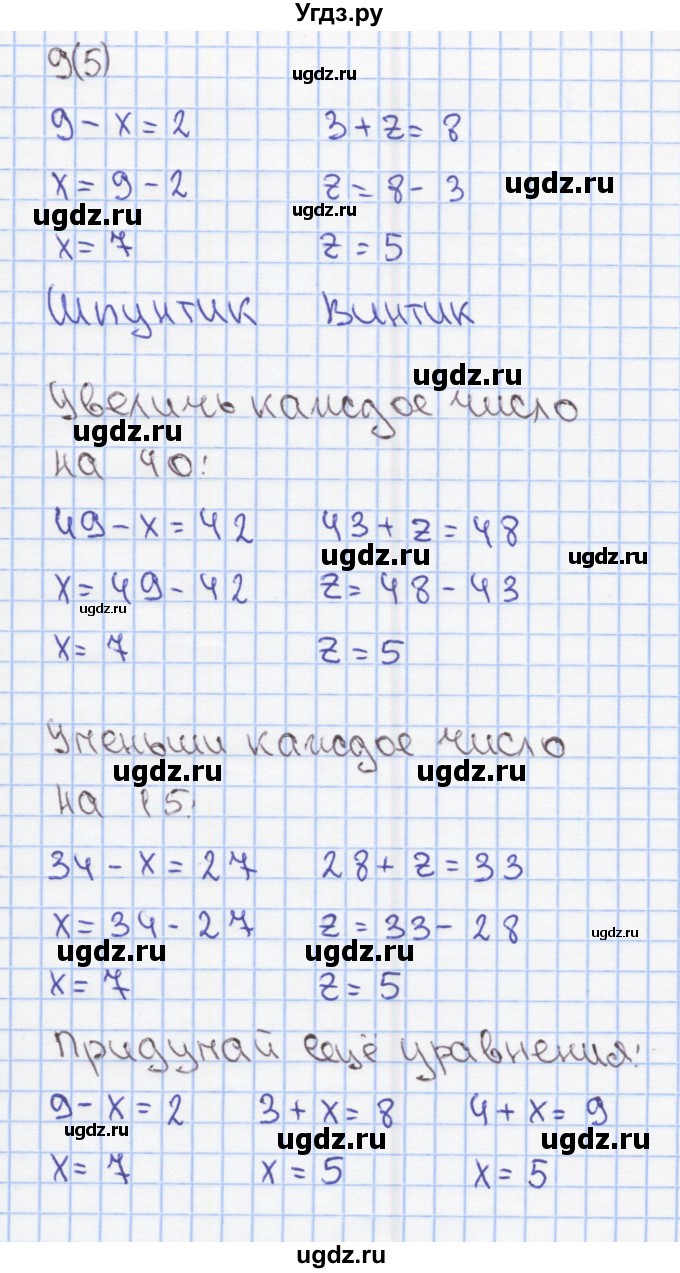 Угдз.ру
9(5)
ugdz.ru
9 - x = 2 3 + z = 8
x = 9 - 2 z = 8 - 3 ugdz.ru
ugdz.ru ugdz.ru
x = 7 z = 5
Шпунтик Винтик
ugdz.ru
Увеличь каждое число
ugdz.ru
на 40:
49 - x = 42 43 + z = 48
ugdz.ru ugdz.ru
x = 49 - 42 z = 48 - 43
ugdz.ru
x = 7 z = 5
Уменьши каждое число
ugdz.ru ugdz.ru
на 15:
34 - x = 27 28 + z = 33
x = 34 - 27 z = 33 - 28 ugdz.ru
ugdz.ru ugdz.ru
x = 7 z = 5
Придумай ещё уравнения:
9 - x = 2 3 + x = 8 4 + x = 9
ugdz.ru ugdz.ru ugdz.ru
x = 7 x = 5 x = 5
ugdz.ru